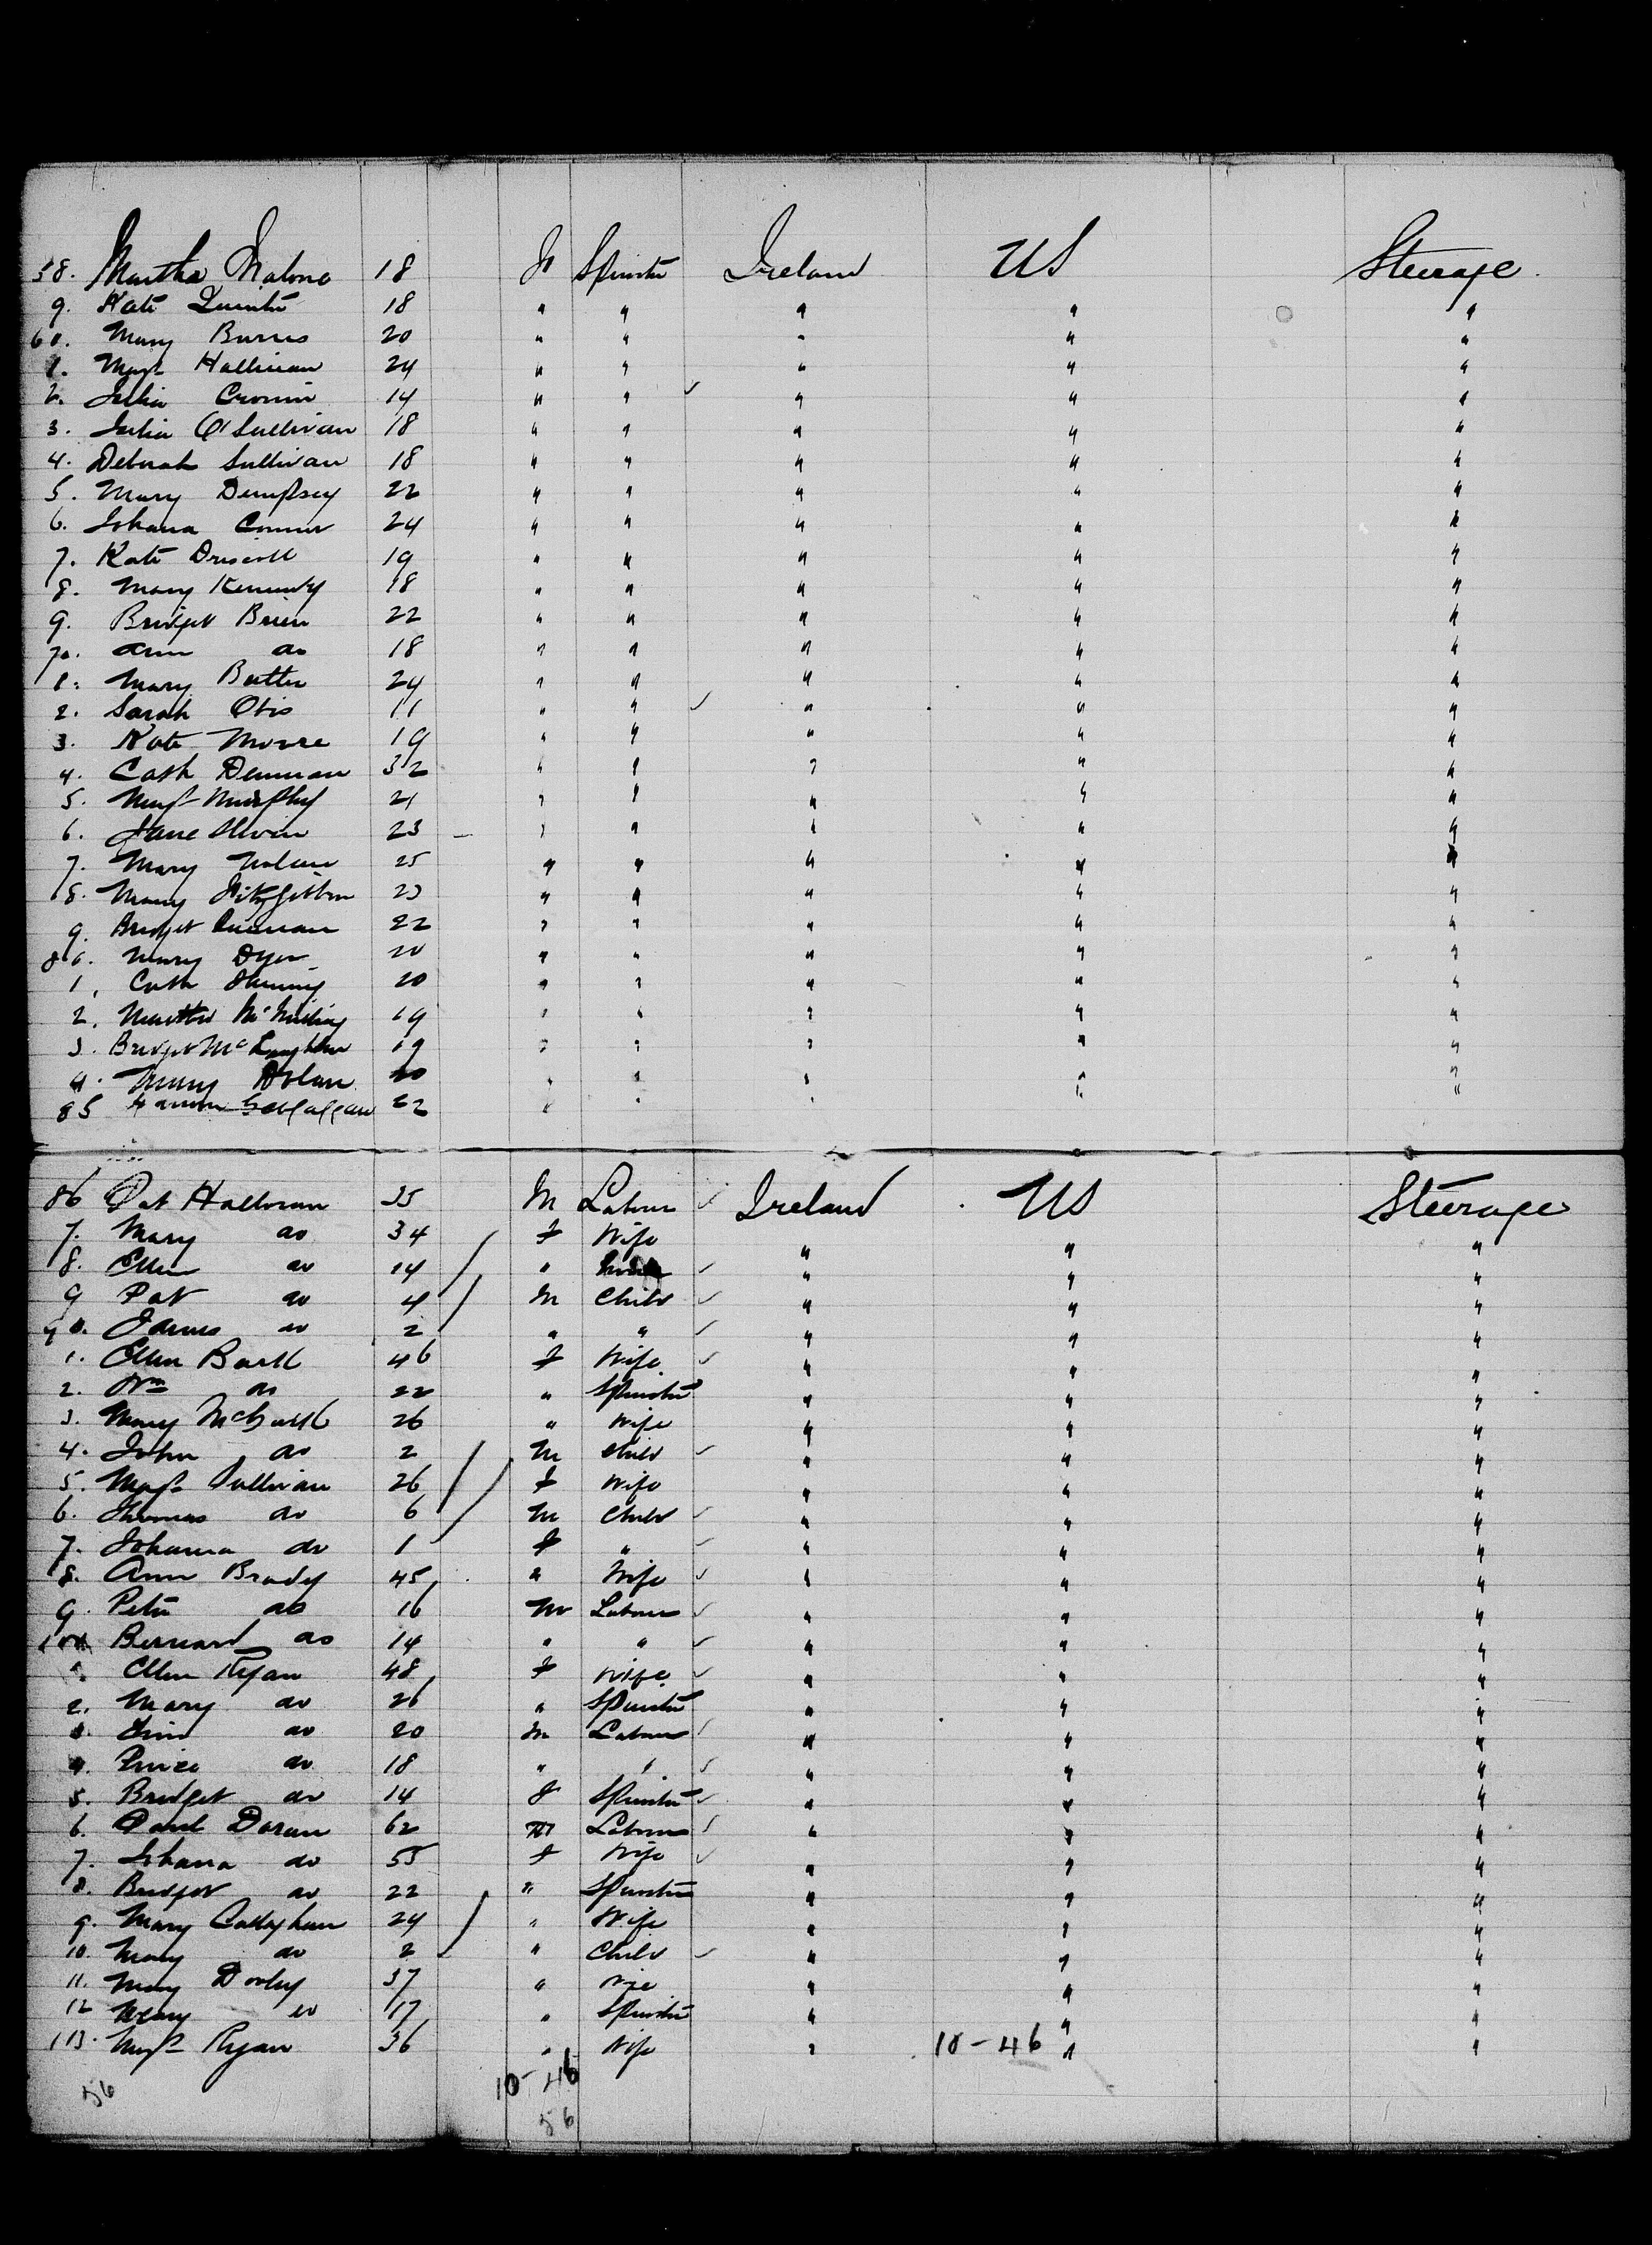 58. Martha Malone 18 F Spinster Ireland US Steerage
9. Kate 18 " " " " "
60. Mary Burns 20 " " " " "
1. Margt Hallinan 24 " " " " "
2. Julia Cronin 14 " " " " "
3. Julia O'Sullivan 18 " " " " "
4. Deborah Sullivan 18 " " " " "
5. Mary Dempsey 22 " " " " "
6. Johana Connor 24 " " " " "
7. Kate Driscoll 19 " " " " "
8. Mary Kennedy 18 " " " " "
9. Bridget Brien 22 " " " " "
70. Ann do 18 " " " " "
1. Mary Butler 24 " " " " "
2. Sarah Otis 11 " " " " "
3. Kate Moore 19 " " " " "
4. Cath 32 " " " " "
5. Margt Murphy 21 " " " " "
6. Jane 23 " " " " "
7. Mary Nolan 25 " " " " "
8. Mary Fitzgibbon 23 " " " " "
9. Bridget 22 " " " " "
80. Mary Dyer 20 " " " " "
1. Cath 20 " " " " "
2. Martha 19 " " " " "
3. Bridget McLaughlin 19 " " " " "
4. Mary Dolan 20 " " " " "
85 22 " " " " "
86 Pat Halloran 35 M Labour Ireland US Steerage
7. Mary do 34 F Wife " " "
8. Ellen do 14 " " " "
9 Pat do 4 M Child " " "
90. James do 2 " " " " "
1. Ellen 46 F Wife " " "
2. do 22 " Spinster " " "
3. Mary 26 " Wife " " "
4. John do 2 M Child " " "
5. Margt Sullivan 26 F Wife " " "
6. Thomas do 6 M Child " " "
7. Johanna do 1 F " " " "
8. Ann Brady 45 " Wife " " "
9. Peter do 16 M Labour " " "
100 Bernard do 14 " " " " "
1. Ellen Ryan 48 F Wife " " "
2. Mary do 26 " Spinster " " "
3. Tim do 20 M Labour " " "
4. do 18 " " " " "
5. Bridget do 14 F Spinster " " "
6. Doran 62 M Labour " " "
7. Johana do 55 F Wife " " "
8. Bridget do 22 " Spinster " " "
9. Mary Callaghan 24 " Wife " " "
10. Mary do 2 " Child " " "
11. Mary Dooley 37 " " " "
12 Mary do 17 " Spinster " " "
113. Margt Ryan 36 " Wife " 10-46 " "
56 10-46
56